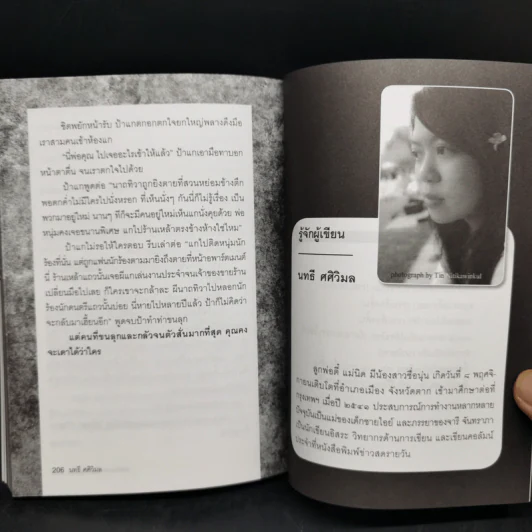 ชิตพยักหน้ารับ ป้าแกตกอกตกใจยกใหญ่พลางดึงมือ
เราสามคนเข้าห้องแก
"นี่พ่อคุณ ไปเจออะไรเข้าให้แล้ว" ป้าแกเอามือทาบอก
หน้าตาตื่น จนเราตกใจไปด้วย
ป้าแกพูดต่อ "นาถทิวาถูกยิงตายที่สวนหย่อมข้างตึก
พอตกค่ำไม่มีใครไปนั่งหรอก ที่เห็นนั่งๆ กันนี่ก็ไม่รู้เรื่อง เป็น
พวกมาอยู่ใหม่ นานๆ ทีก็จะมีคนอยู่ใหม่เห็นแกนั่งคุยด้วย พ่อ
หนุ่มคงเจอขนานพิเศษ แกไปร้านเหล้าตรงข้างห้างใช่ไหม"
ป้าแกไม่รอให้ใครตอบ รีบเล่าต่อ "แกไปติดหนุ่มนัก
ร้องที่นั่น แต่ถูกแฟนนักร้องตามมายิงถึงตายที่หน้าอพาร์ตเมนต์
นี่ ร้านเหล้าแถวนั้นเจอผีแกเล่นงานประจำจนเจ้าของขายร้าน
เปลี่ยนมือไปเลย ก็ใครเขาจะกล้าละ มีนาถทิวาไปหลอกนัก
ร้องนักดนตรีแถวนั้นบ่อย นี่หายไปหลายปีแล้ว ป้าก็ไม่คิดว่า
จะกลับมาเฮี้ยนอีก" พูดจบป้าทำท่าขนลุก
แต่คนที่ขนลุกและกลัวจนตัวสั่นมากที่สุด คุณคง
จะเดาได้ว่าใคร
206 นทธี ศศิวิมล
photograph by Tin
รู้จักผู้เขียน
นทธี ศศิวิมล
ลูกพ่อตี๋ แม่นิด มีน้องสาวชื่อนุ่น เกิดวันที่ ๘ พฤศจิ-
กายนเติบโตที่อำเภอเมือง จังหวัดตาก เข้ามาศึกษาต่อที่
กรุงเทพฯ เมื่อปี ๒๕๔๑ ประสบการณ์การทำงานหลากหลาย
ปัจจุบันเป็นแม่ของเด็กชายไอย์ และภรรยาของจารี จันทราภา
เป็นนักเขียนอิสระ วิทยากรด้านการเขียน และเขียนคอลัมน์
ประจำที่หนังสือพิมพ์ข่าวสดรายวัน